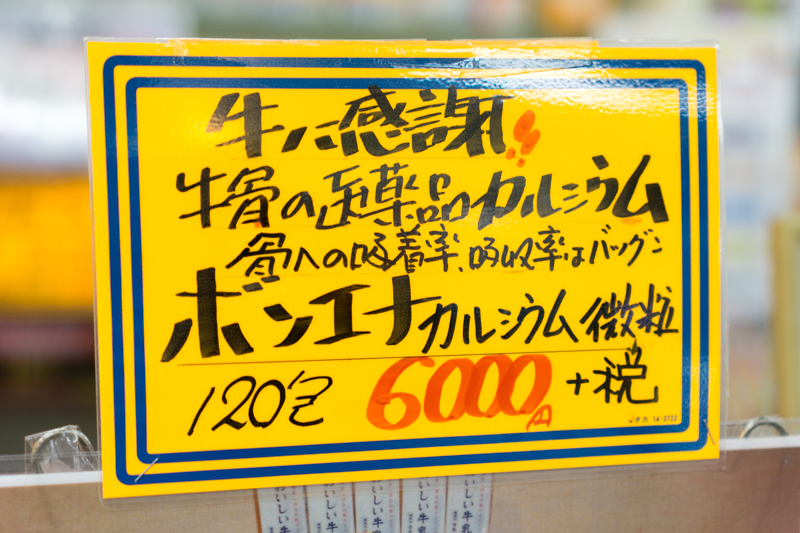 牛に感謝!!
牛骨の医薬品カルシウム
骨への吸着率、吸収率はバツグン
ボンエナカルシウム微粒
120包 6000円 +税
タカ 14-3722
おいしい牛乳
おいしい牛乳
おいしい牛乳
おいしい牛乳
おいしい牛乳